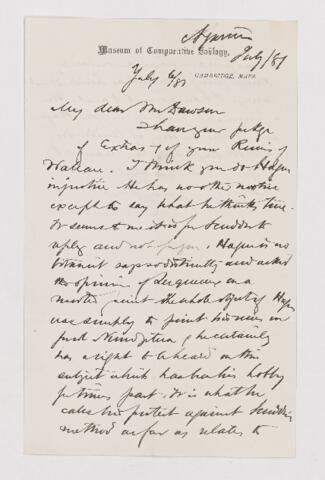 Agassiz
July/81
Museum of Comparative Zoölogy,
CAMBRIDGE, MASS.
July 6/81
My dear Mr Dawson
Thank you
of Extras & of your Review of
Wallace. I think you do Hagen
injustice He has no other motive
except to say what he thinks true.
It seems to me it is for Scudder to
reply and not
botanist says so distinctly and asked
the opinion of Lesquereux on a
the whole object of Hagen
was simply to point his views on
Neuroptera & he certainly
has a right to be heard on this
subject which has been his hobby
for times past. It is what he
calls his protest against Scudder's
method as far as relates to